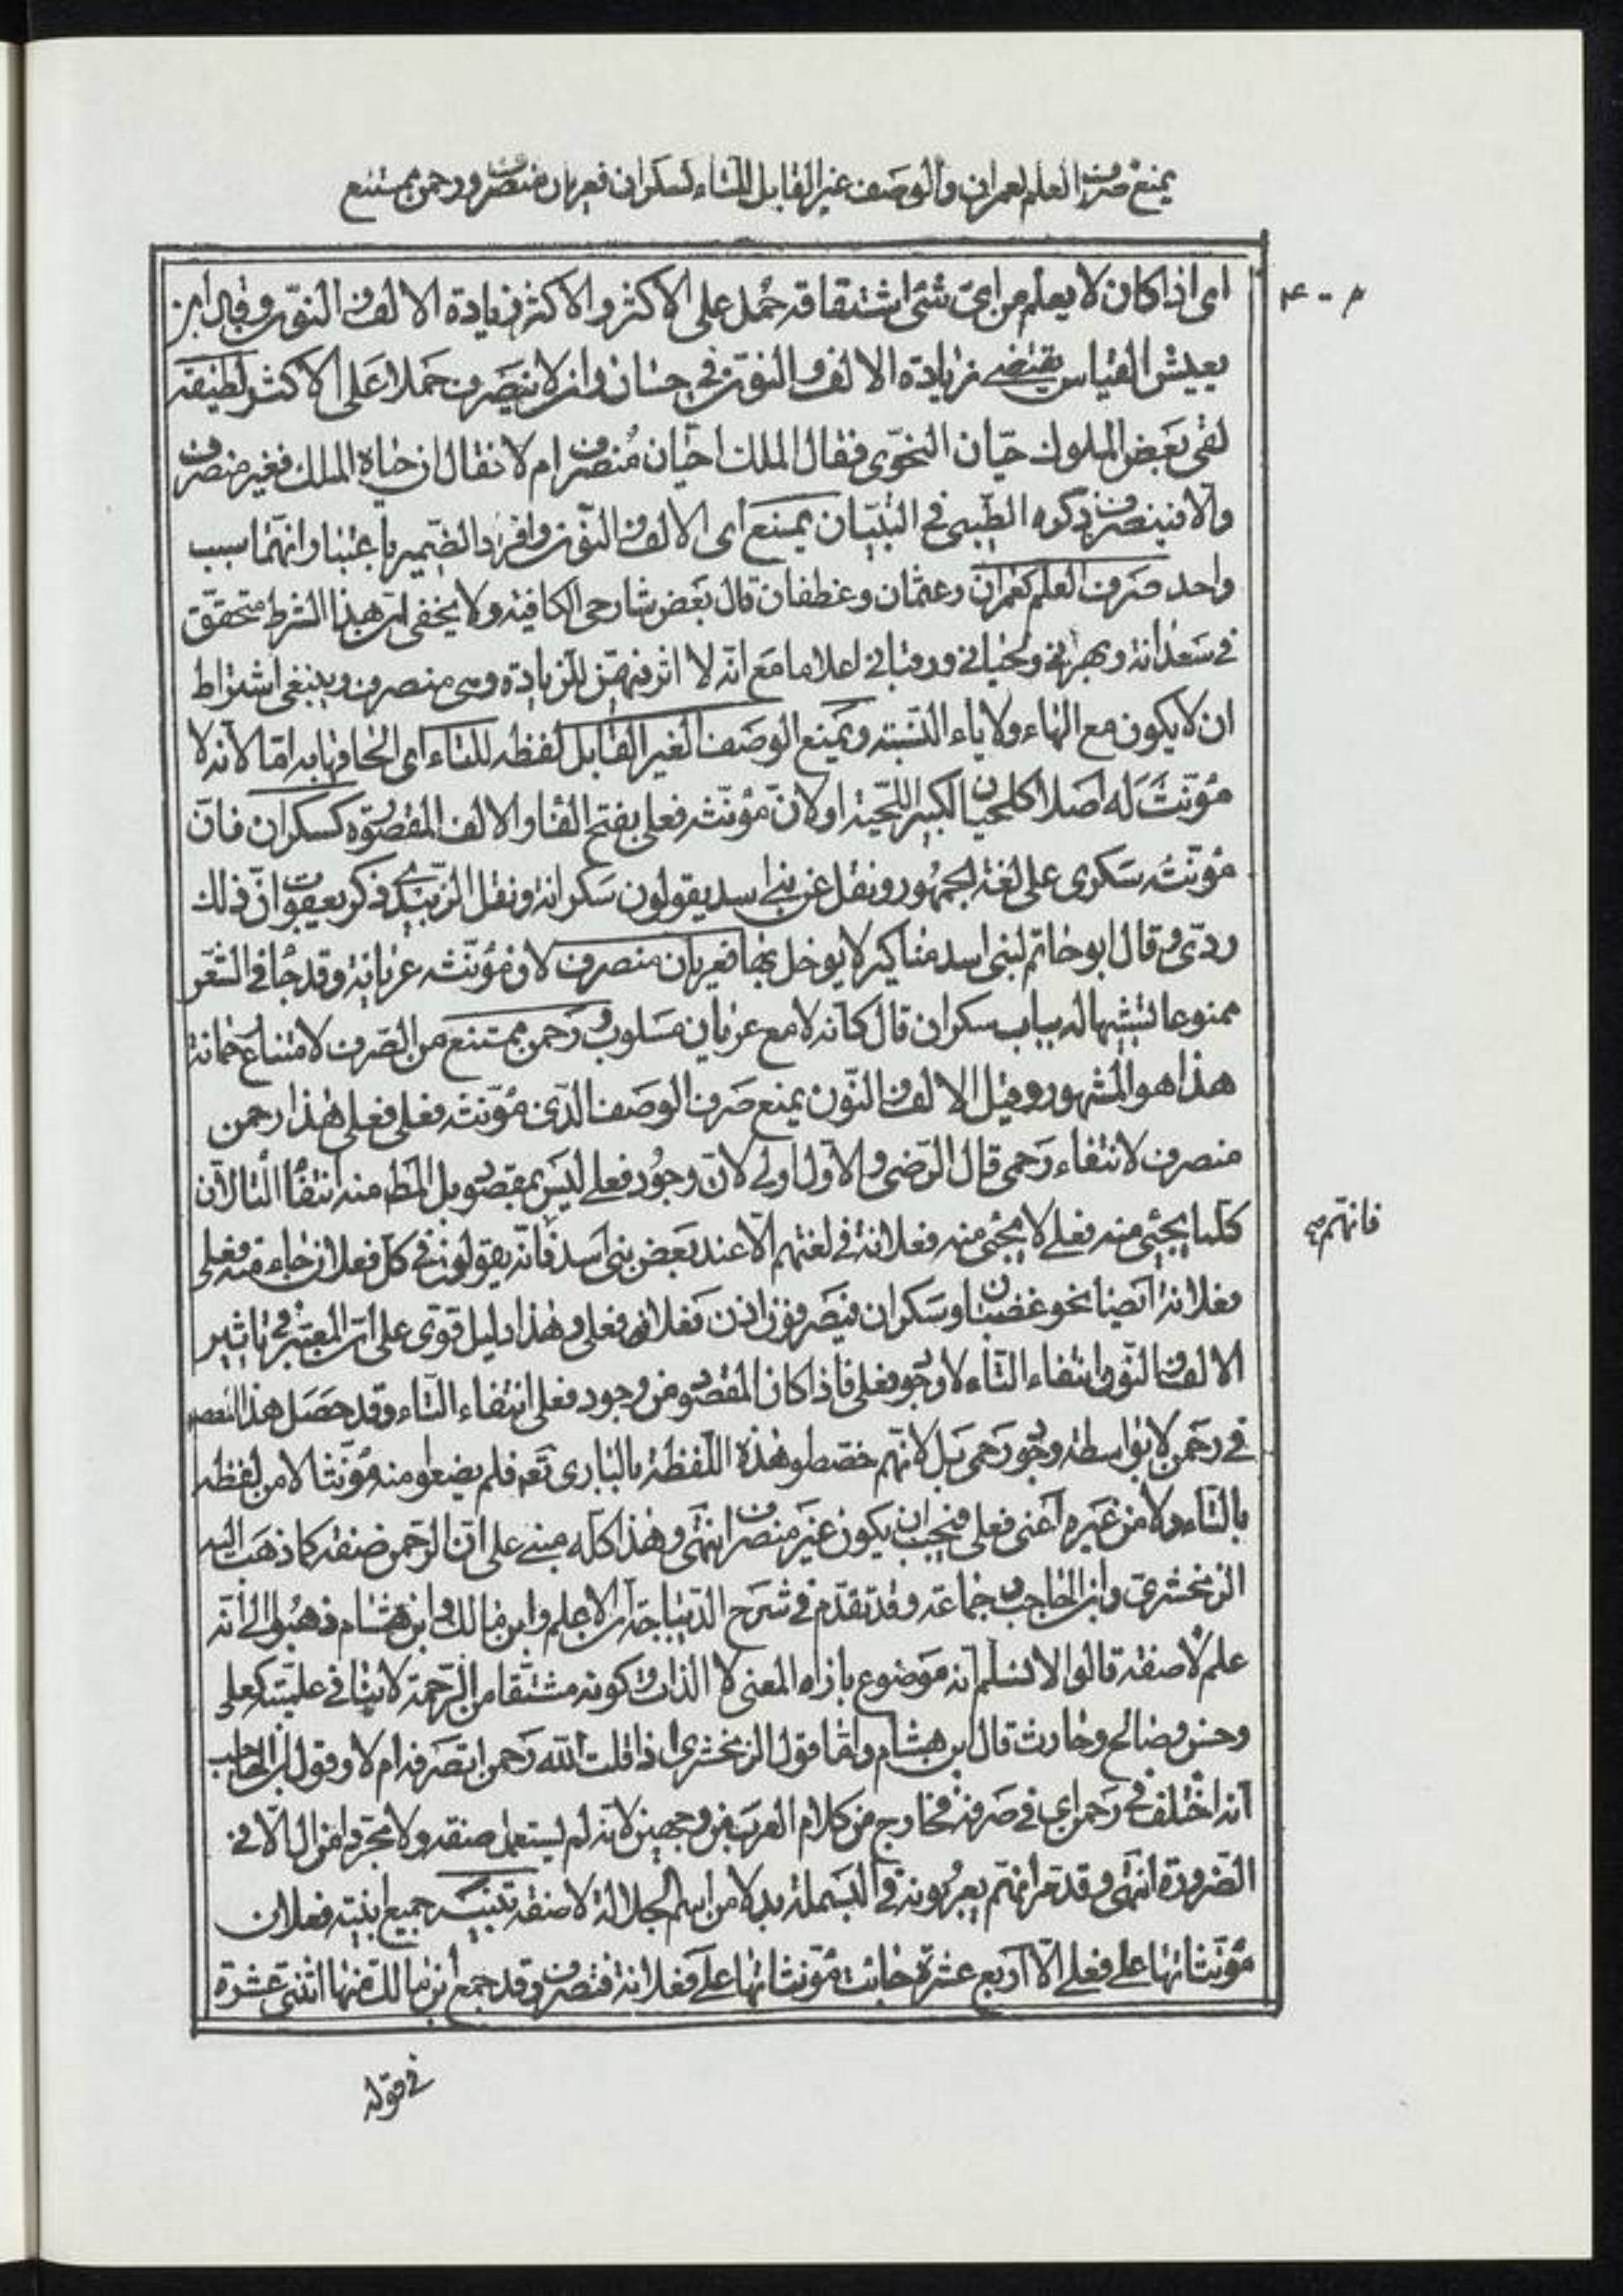 يمنع صرف العلم كعمران والوصف غير القابل للتاء كسكران فعريان منصرف ورحمن ممتنع
اى اذا كان لا يعلم من اىّ شئ اشتقاقه حمل على الاكثر والاكثر زيادة الالف والنّون وقال ابن
يعيش القياس يقتضے زيادة الالف والنّون فى حسان وانه لا ينصرف حملا على الاكثر لطيفة
لقى بعض الملوك حيّان النحوى فقال الملك احيّان منصرف ام لا فقال ان حياه الملك فغير منصرف
والا فينصرف ذكره الطّيبى فى التبيان يمنع اى الالف والنّون وافرد الضّمير باعتبار انّهما سبب
واحد صرف العلم كعمران وعثمان وغطفان قال بعض شارحى الكافية ولا يخفى انّ هذا الشرط متحقّق
فى سعدانة وبهرانى ولحيانى ورقبانى اعلاما مع انّه لا اثر فيهنّ للزيادة وهى منصرف وينبغى اشتراط
ان لا يكون مع الهاء ولا ياء النّسبته ويمنع الوصف الغير القابل لفظه للتاء اى الحاقها به امّا لانه لا
مؤنّث له اصلا كلحيان الكبير اللّحية او لانّ مؤنّثه فعلى بفتح الفا والالف المقصورة كسكران فانّ
مؤنّثه سكرى على لغة الجمهور ونقل عن بنى اسد يقولون سكرانة ونقل الزّبيدى ذكر يعقوب انّ ذلك
ردىّ وقال ابو حاتم لبنى اسد مناكير لا يوخل بها فعريان منصرف لان مؤنّثه عريانة وقد جا فى الشّعر
ممنوعا تشبيها له بباب سكران قال كانه لامع عريان مسلوب ورحمن ممتنع من الصّرف لامتناع رحمانة
هذا هو المشهور وقيل الالف والنّون يمنع صرف الوصف الّذى مؤنّثه فعلى فعلى هذا رحمن
منصرف لانتفاء رحمى قال الرّضى والاوّل اولى لانّ وجود فعلى ليس بمقصود بل المط منه انتفاء التا لان
كلّما يجئى منه فعلى لا يجئى منه فعلانة فى لغتهم الّا عند بعض بنى اسد فانّه يقولون فى كلّ فعلان جاء منه فعلى
فعلانة ايضا نحو غضبان وسكران فيصرفون اذن فعلان فعلى وهذا دليل قوى على انّ المعتبر فى تاثير
الالف والنّون انتفاء التّاء لا وجود فعلى فاذا كان المقصود من وجود فعلى انتفاء التّاء وقد حصل هذا المقصود
فى رحمن لا بواسطة وجود رحمى بل لانّهم خصّصوا هذه اللّفظة بالبارى تع فلم يضعوا منه مؤنّثا لا من لفظه
بالتّاء ولا من غيره اعنى فعلى فيجب ان يكون غير منصرف انتهى وهذا كلّه مبنى على انّ الرّحمن صفة كما ذهب اليه
الزّمخشرىّ وابن الحاجب وجماعة وقد تقدّم فى شرح الدّيباجة انّ الاعلم وابن مالك وابن هشام ذهبوا الى انّه
علم لا صفة قالوا لا نسلّم انه موضوع بازاء المعنى لا الذات وكونه مشتقّا من الرّحمة لا ينافى علميّته كعلى
وحسن وصالح وحارث قال ابن هشام وامّا قول الزمخشرى اذا قلت اللّه رحمن اتصرفه ام لا وقول ابن الحاجب
انه اختلف فى رحمن اى فى صرفه فخارج من كلام العرب من وجهين لانه لم يستعمل صفة ولا مجرّدا من ال الّا فى
الضّرورة انتهى وقد مرّ انّهم يعربونه فى البسملة بدلا من اسم الجلالة لا صفة تنبيه جميع ابنية فعلان
مؤنّثاتها على فعلى الّا اربع عشرة جائت مؤنّثاتها على فعلانة فتصرف وقد جمع ابن مالك منها اثنتى عشرة
فى قوله
فانهم